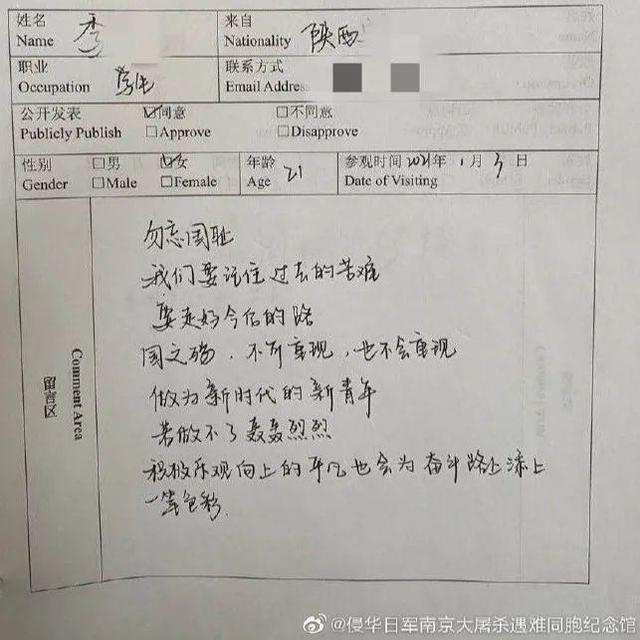 姓名 李 来自 陕西
Name Nationality
职业 学生 联系方式
Occupation Email Address
公开发表 ☑同意 □不同意
Publicly Publish □Approve □Disapprove
性别 □男 ☑女 年龄 21 参观时间 2021年 1 月 3 日
Gender □Male □Female Age Date of Visiting
留言区
Comment Area
勿忘国耻
我们要记住过去的苦难
要走好今后的路
国之殇，不可重现，也不会重现
做为新时代的新青年
若做不了轰轰烈烈
积极乐观向上的平凡也会为奋斗路上添上
一笔色彩
@侵华日军南京大屠杀遇难同胞纪念馆